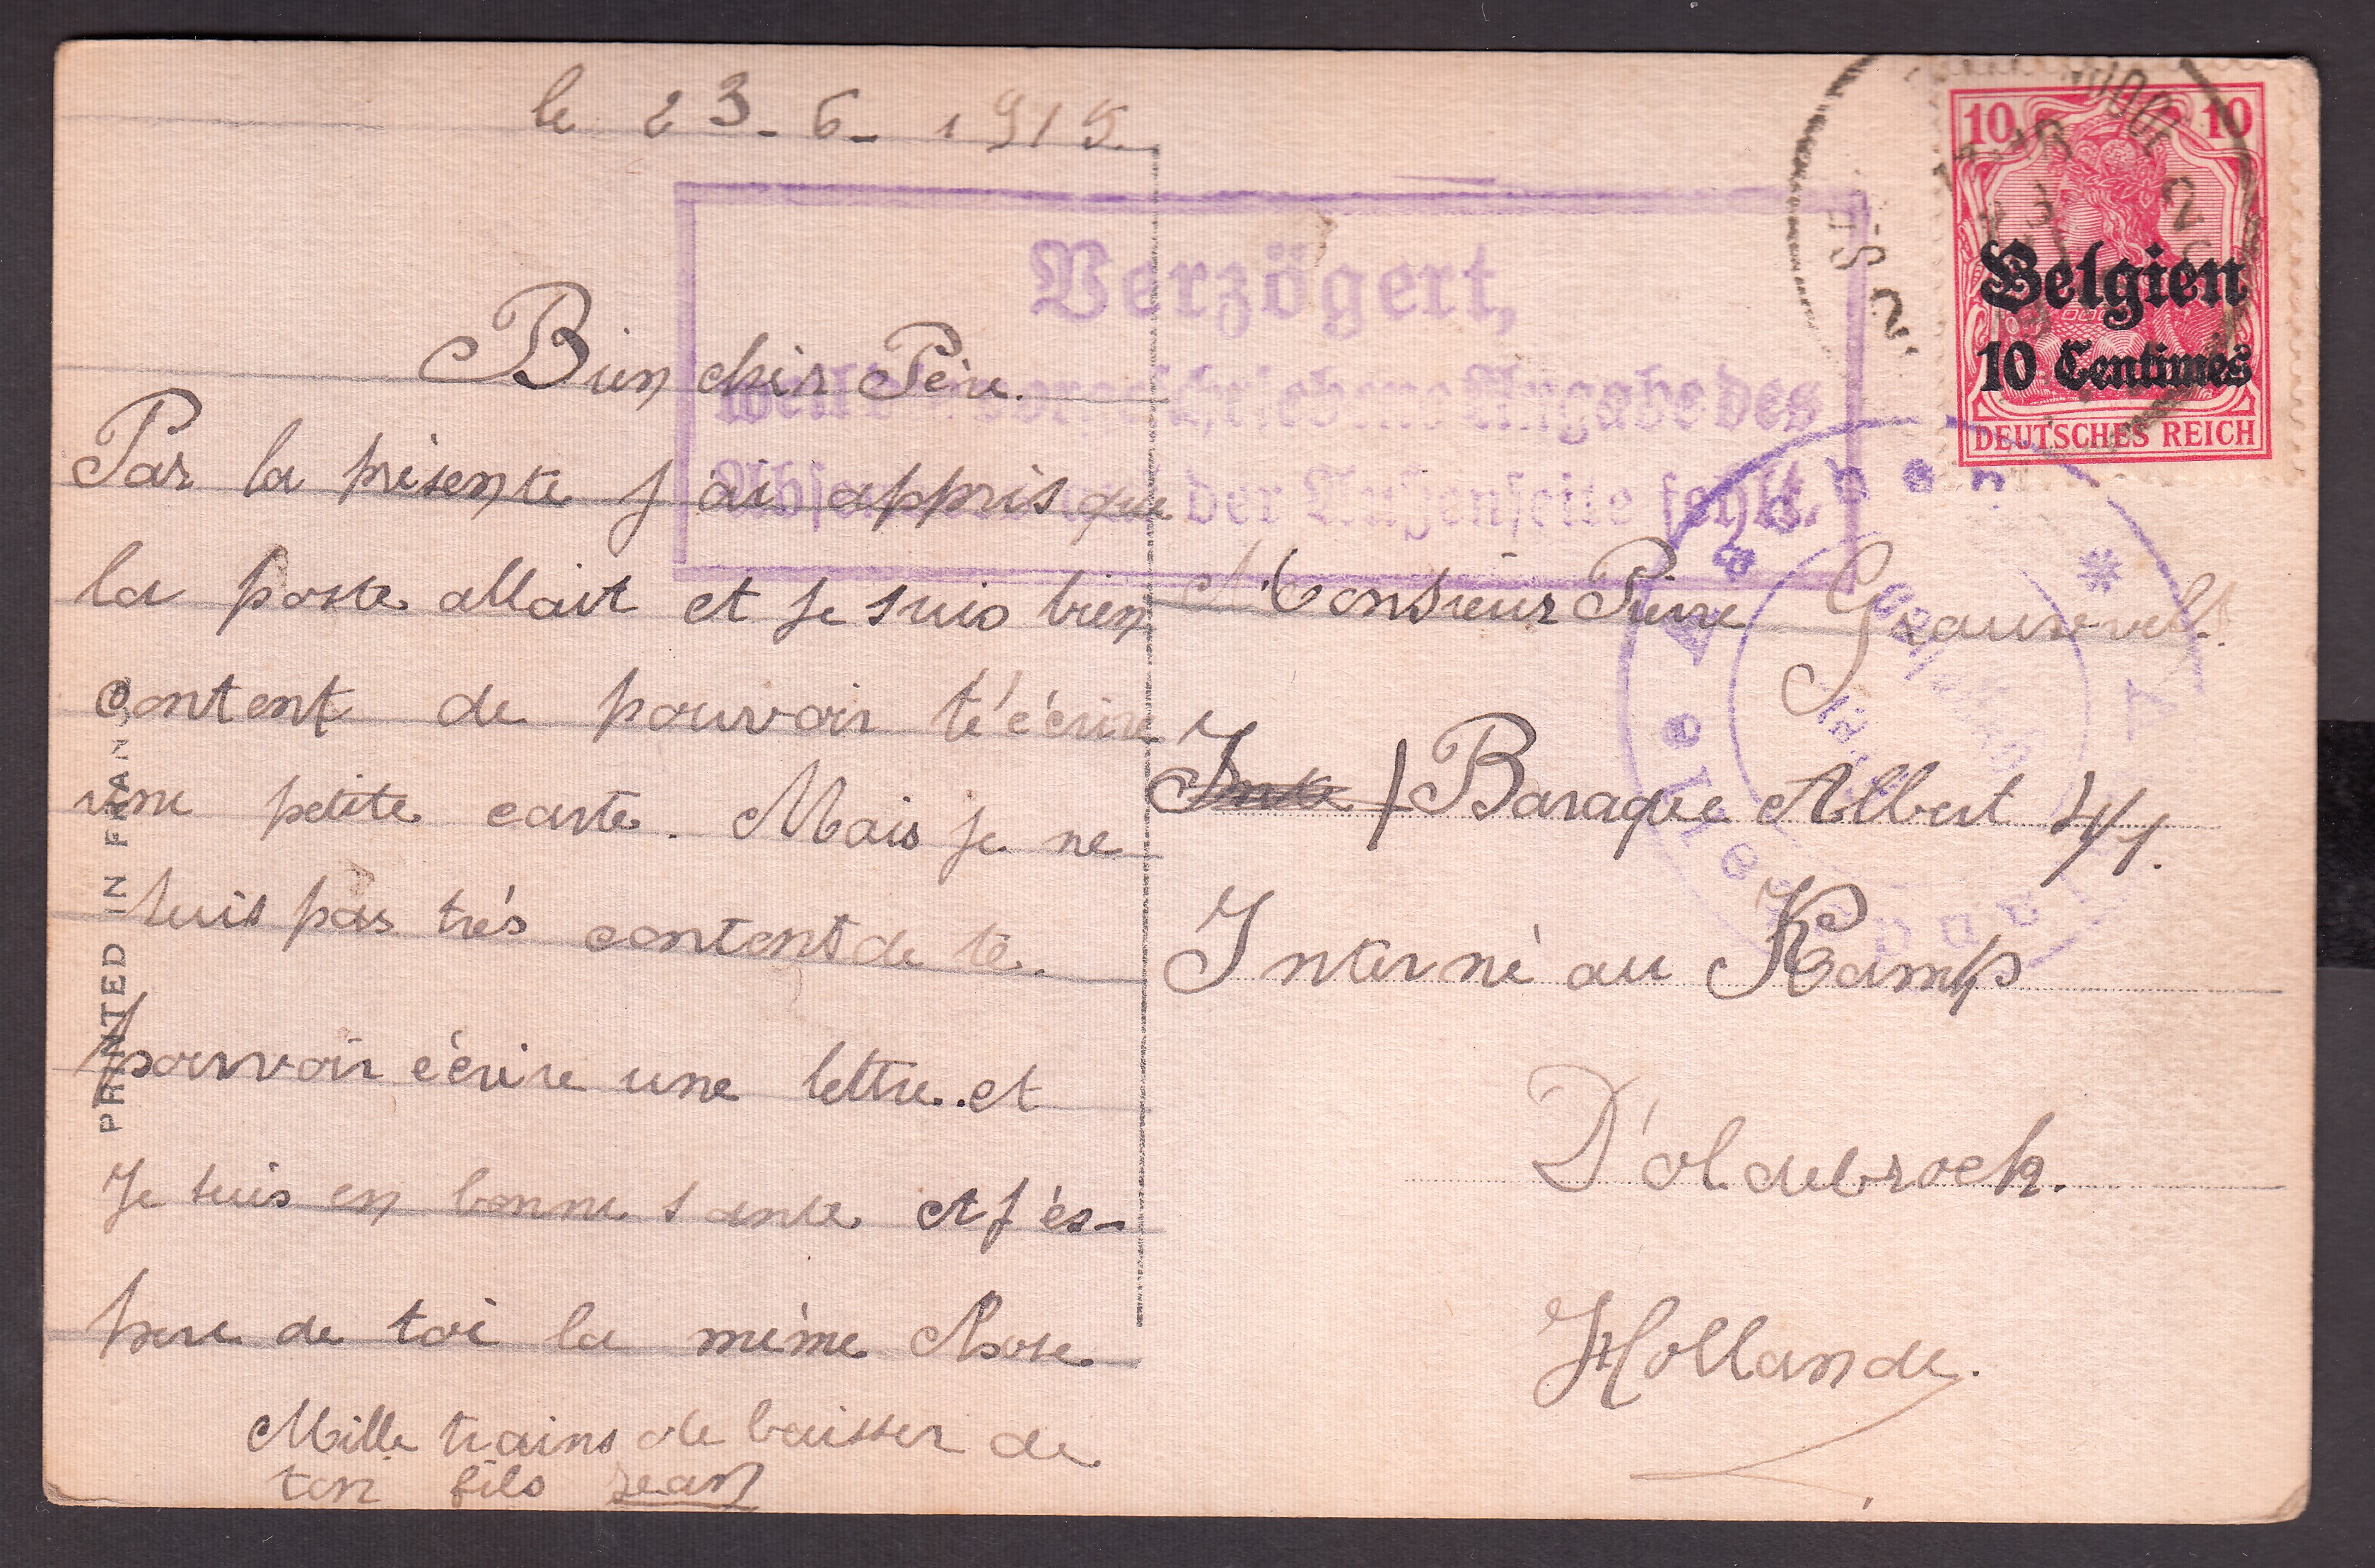 le 23-6-1915.
Bien chér Père.
Par la présente j'ai appris que
la poste allait et je suis bien
content de pouvoir té écrire
une petite carte. Mais je ne
suis pas trés content de te
pouvoir écrire une lettre. et
Je suis en bonne sante et j'és-
pere de toi la même chose
Mille trains de baisser de
ton fils Jean
PRINTED IN FRANCE
Verzögert,
weil vorgeschriebene Angabe des
Absenders auf der Außenseite fehlt.
10 10
Belgien
10 Centimes
DEUTSCHES REICH
Aachen
Auslandstelle
Monsieur Pierre
Baraque Albert
Interné au Kamp
D'oldebroek.
Hollande.